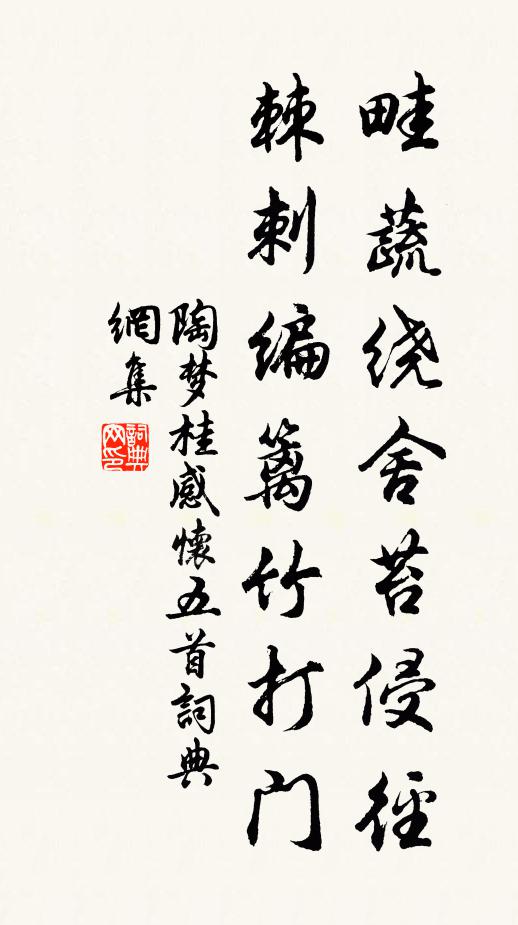 畦蔬绕舍苔侵径
棘刺编篱竹打门
陶梦桂感懷五首詞典
網集
詞典网印